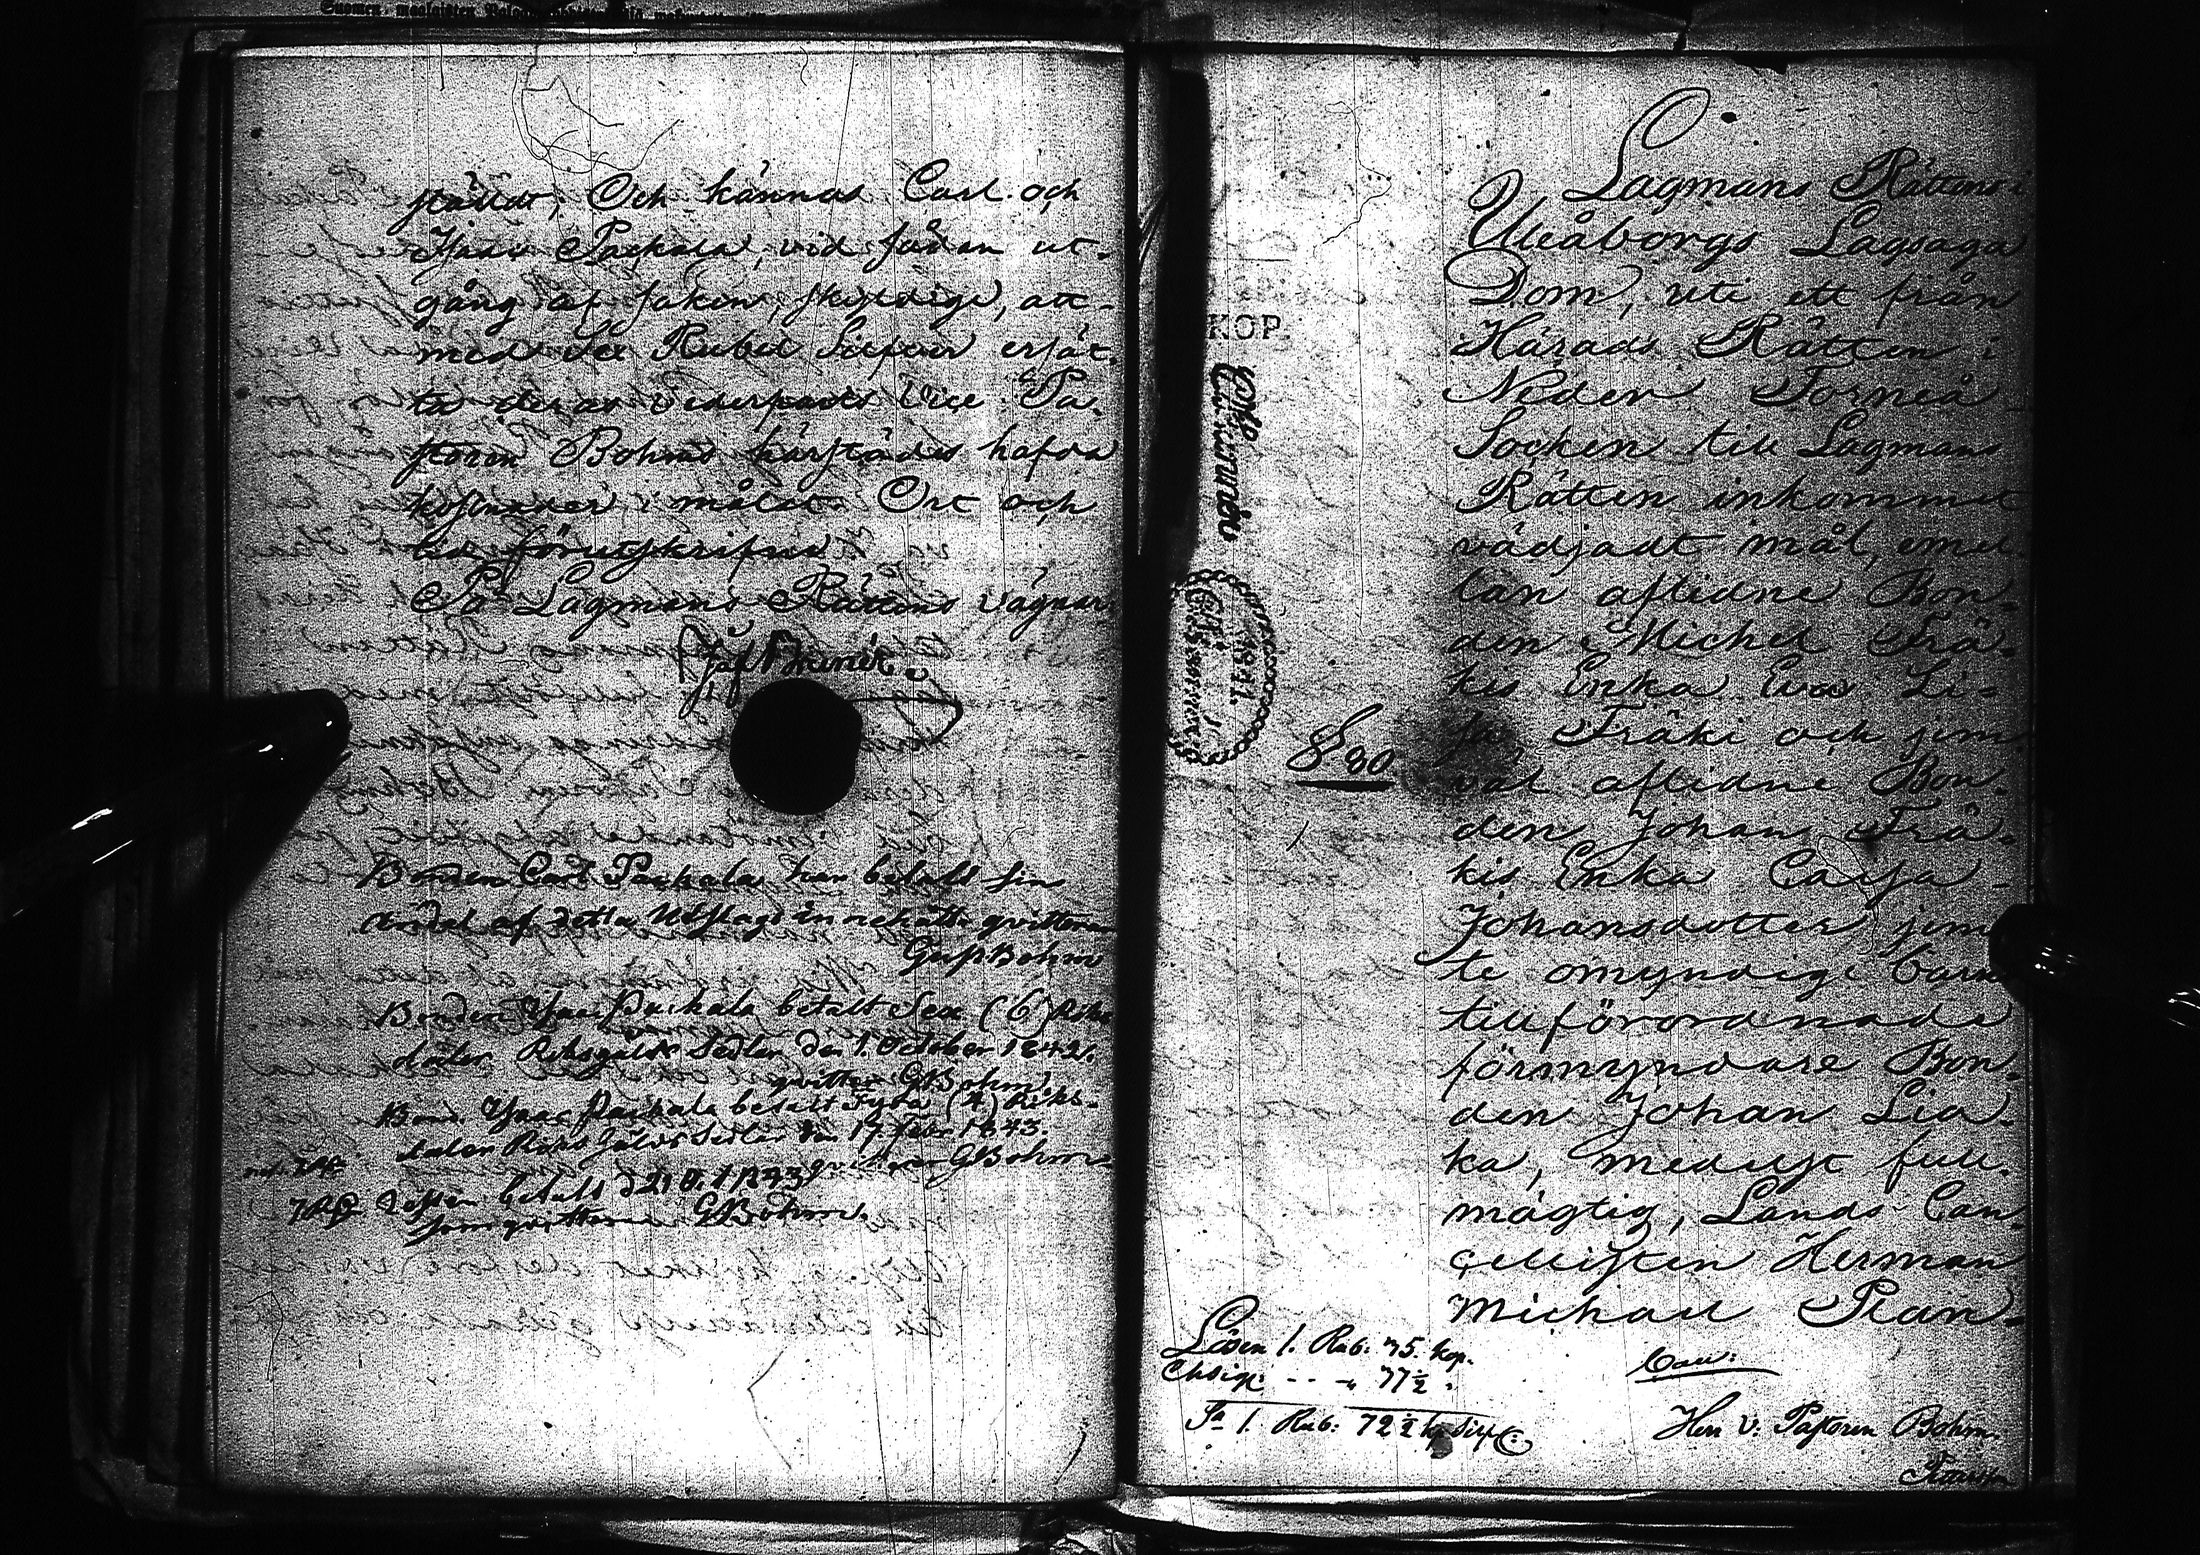 ställdt, Och kännas Carl och
Isaac Packala, vid sådan ut-
gång af saken, skyldige, att
med Sex Rubel Silfver ersät-
ta deras Vederparts Vice Pa-
storn Bohms härstädes hafda
kostnader i målet. Ort och
tid förutskrifne
På Lagmans Rättens vägnar:
Bonden Carl Packala har betalt sin
andel af detta Utslag qvitteras
Gust Bohm
Bonden Isac Packala betalt Sex (6) Riks-
daler Riksgälds Sedlar den 1. October 1842.
qvitter. GBohm
Bond. Isac Packala betalt Fyra (4) Riks-
daler Riks Gälds Sedlar den 17 febr 1843.
qvitteras GBohm
resten betalt
som qvitteras GBohm.
KOP.
880
Lagmans Rättens i
Uleåborgs Lagsaga
Dom, uti ett från
Härads Rätten i
Neder Torneå
Socken till Lagmans
Rätten inkommet
vädjadt mål, emel-
lan aflidne Bon-
den Michel Frä-
kis Enka Eva Li-
sa Fräki och jem-
väl aflidne Bon-
den Johan Frä-
kis Enka Caisa
Johansdotter jem-
te omyndige barn
tillförordnade
förmyndare Bon-
den Johan Lia-
ka, medelst full-
mägtig, Lands Can-
cellisten Herman
Michael Plan-
Lösen 1. Rub. 75. kop.
Chsigr. - - " 77½ "
Sa 1. Rub: 72½ k
Herr V: Pastoren Bohm.